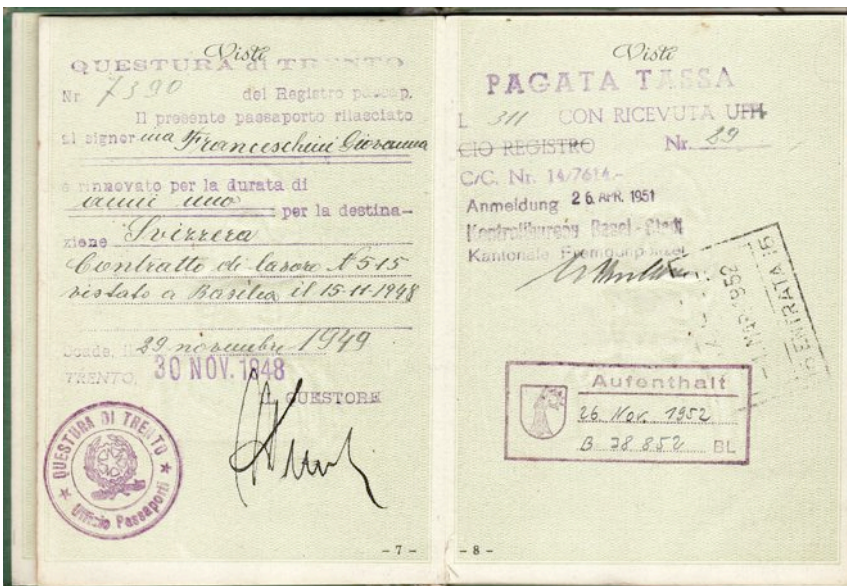 Visti
QUESTURA di TRENTO
Nr. 7390 del Registro passap.
Il presente passaporto rilasciato
al signor ina Franceschini Giovanna
è rinnovato per la durata di
anni uno per la destina-
zione Svizzera
Contratto di lavoro N 515
vistato a Basilea il 15-11-1948
Scade, il 29 novembre 1949
TRENTO, 30 NOV. 1948
IL QUESTORE
QUESTURA DI TRENTO
Ufficio Passaporti
- 7 -
Visti
PAGATA TASSA
L 311 CON RICEVUTA UFFI
CIO REGISTRO Nr. 89
C/C. Nr. 14/7614.-
Anmeldung 26. APR. 1951
Kontrollbureau Basel-Stadt
Kantonale Fremdenpolizei
MAR. 1952
ENTRATA 15
Aufenthalt
26. Nov. 1952
B 38 852 BL
- 8 -